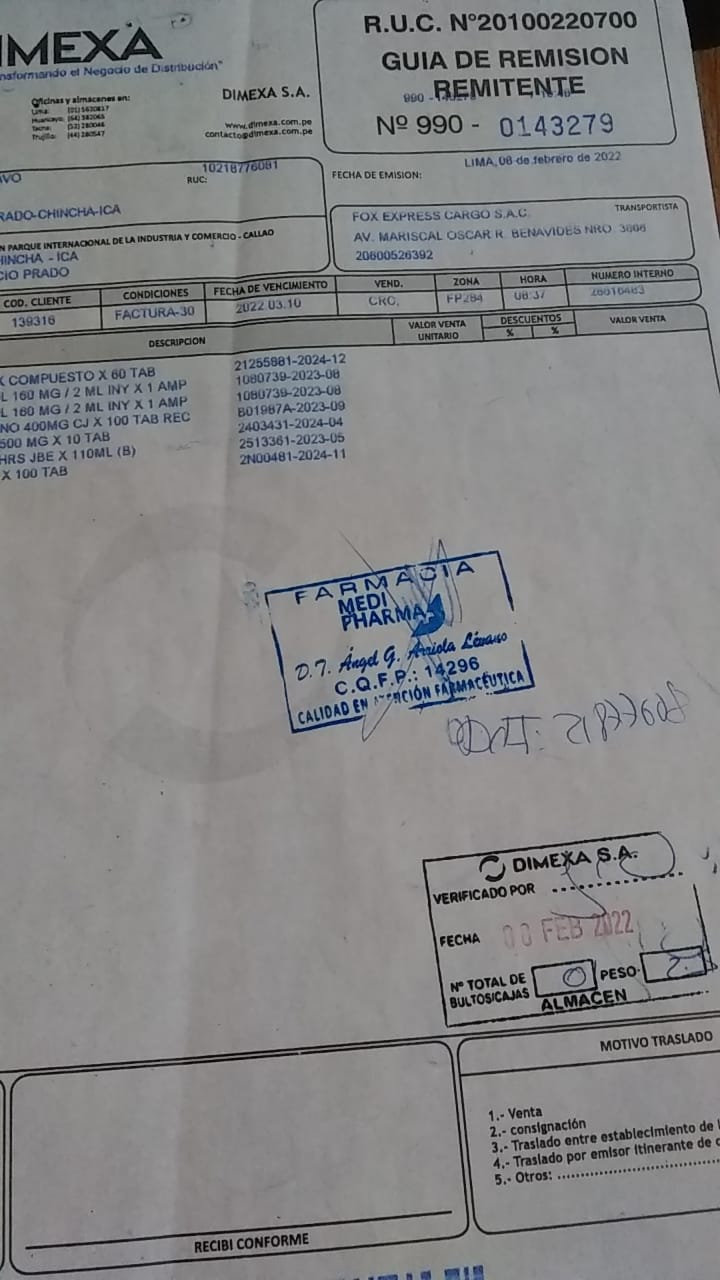 IMEXA
nsformando el Negocio de Distribución"
Oficinas y almacenes en:
Lima: (01) 5630817
Huancayo: (64) 382065
Tacna: (52) 280046
Trujillo: (44) 280547
DIMEXA S.A.
www.dimexa.com.pe
contacto@dimexa.com.pe
R.U.C. N°20100220700
GUIA DE REMISION
REMITENTE
990 -
Nº 990 - 0143279
LIMA, 08 de febrero de 2022
FECHA DE EMISION:
AVO
RUC:
10218776081
RADO-CHINCHA-ICA
N PARQUE INTERNACIONAL DE LA INDUSTRIA Y COMERCIO - CALLAO
HINCHA - ICA
CIO PRADO
TRANSPORTISTA
FOX EXPRESS CARGO S.A.C.
AV. MARISCAL OSCAR R. BENAVIDES NRO. 3606
20600526392
COD. CLIENTE CONDICIONES FECHA DE VENCIMIENTO VEND. ZONA HORA NUMERO INTERNO
139316 FACTURA-30 2022.03.10 CRC. FP284 08:37 28616483
DESCRIPCION VALOR VENTA UNITARIO DESCUENTOS % % VALOR VENTA
X COMPUESTO X 60 TAB 21255881-2024-12
L 160 MG / 2 ML INY X 1 AMP 1080739-2023-08
L 160 MG / 2 ML INY X 1 AMP 1080739-2023-08
NO 400MG CJ X 100 TAB REC B01987A-2023-09
500 MG X 10 TAB 2403431-2024-04
HRS JBE X 110ML (B) 2513361-2023-05
X 100 TAB 2N00481-2024-11
FARMACIA
MEDI
PHARMA
D.T. Ángel G. Arriola Lévano
C.Q.F.P.: 14296
CALIDAD EN ATENCIÓN FARMACÉUTICA
DIMEXA S.A.
VERIFICADO POR
FECHA FEB 2022
Nº TOTAL DE
BULTOS/CAJAS
PESO
ALMACEN
MOTIVO TRASLADO
1.- Venta
2.- consignación
3.- Traslado entre establecimiento de
4.- Traslado por emisor itinerante de
5.- Otros:
RECIBI CONFORME